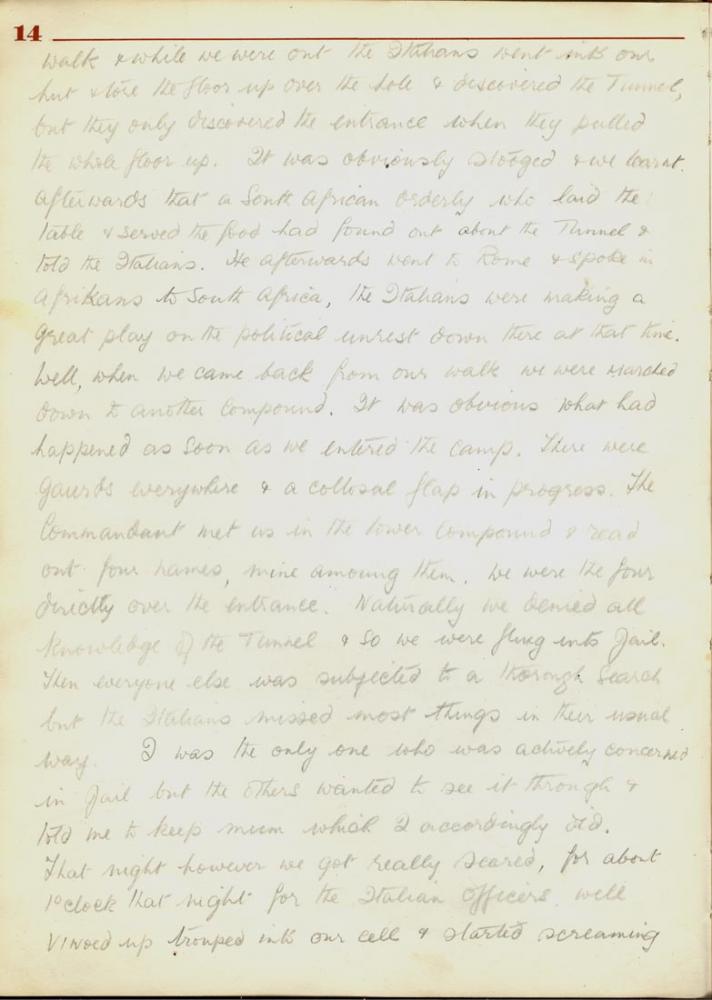 14
walk & while we were out the Italians went into our
hut & tore the floor up over the hole & discovered the Tunnel,
but they only discovered the entrance when they pulled
the whole floor up. It was obviously stooged & we learnt
afterwards that a South African orderly who laid the
table & served the food had found out about the Tunnel &
told the Italians. He afterwards went to Rome & spoke in
Afrikans to South Africa, the Italians were making a
great play on the political unrest down there at that time.
Well, when we came back from our walk we were marched
down to another compound. It was obvious what had
happened as soon as we entered the camp. There were
gaurds everywhere & a collosal flap in progress. The
Commandant met us in the lower compound & read
out four names, mine amoung them. We were the four
directly over the entrance. Naturally we denied all
knowledge of the Tunnel & so we were flung into Jail.
Then everyone else was subjected to a thorough search
but the Italians missed most things in their usual
way. I was the only one who was actively concerned
in Jail but the others wanted to see it through &
told me to keep mum which I accordingly did.
That night however we got really scared, for about
1 o'clock that night for the Italian Officers well
up trouped into our cell & started screaming